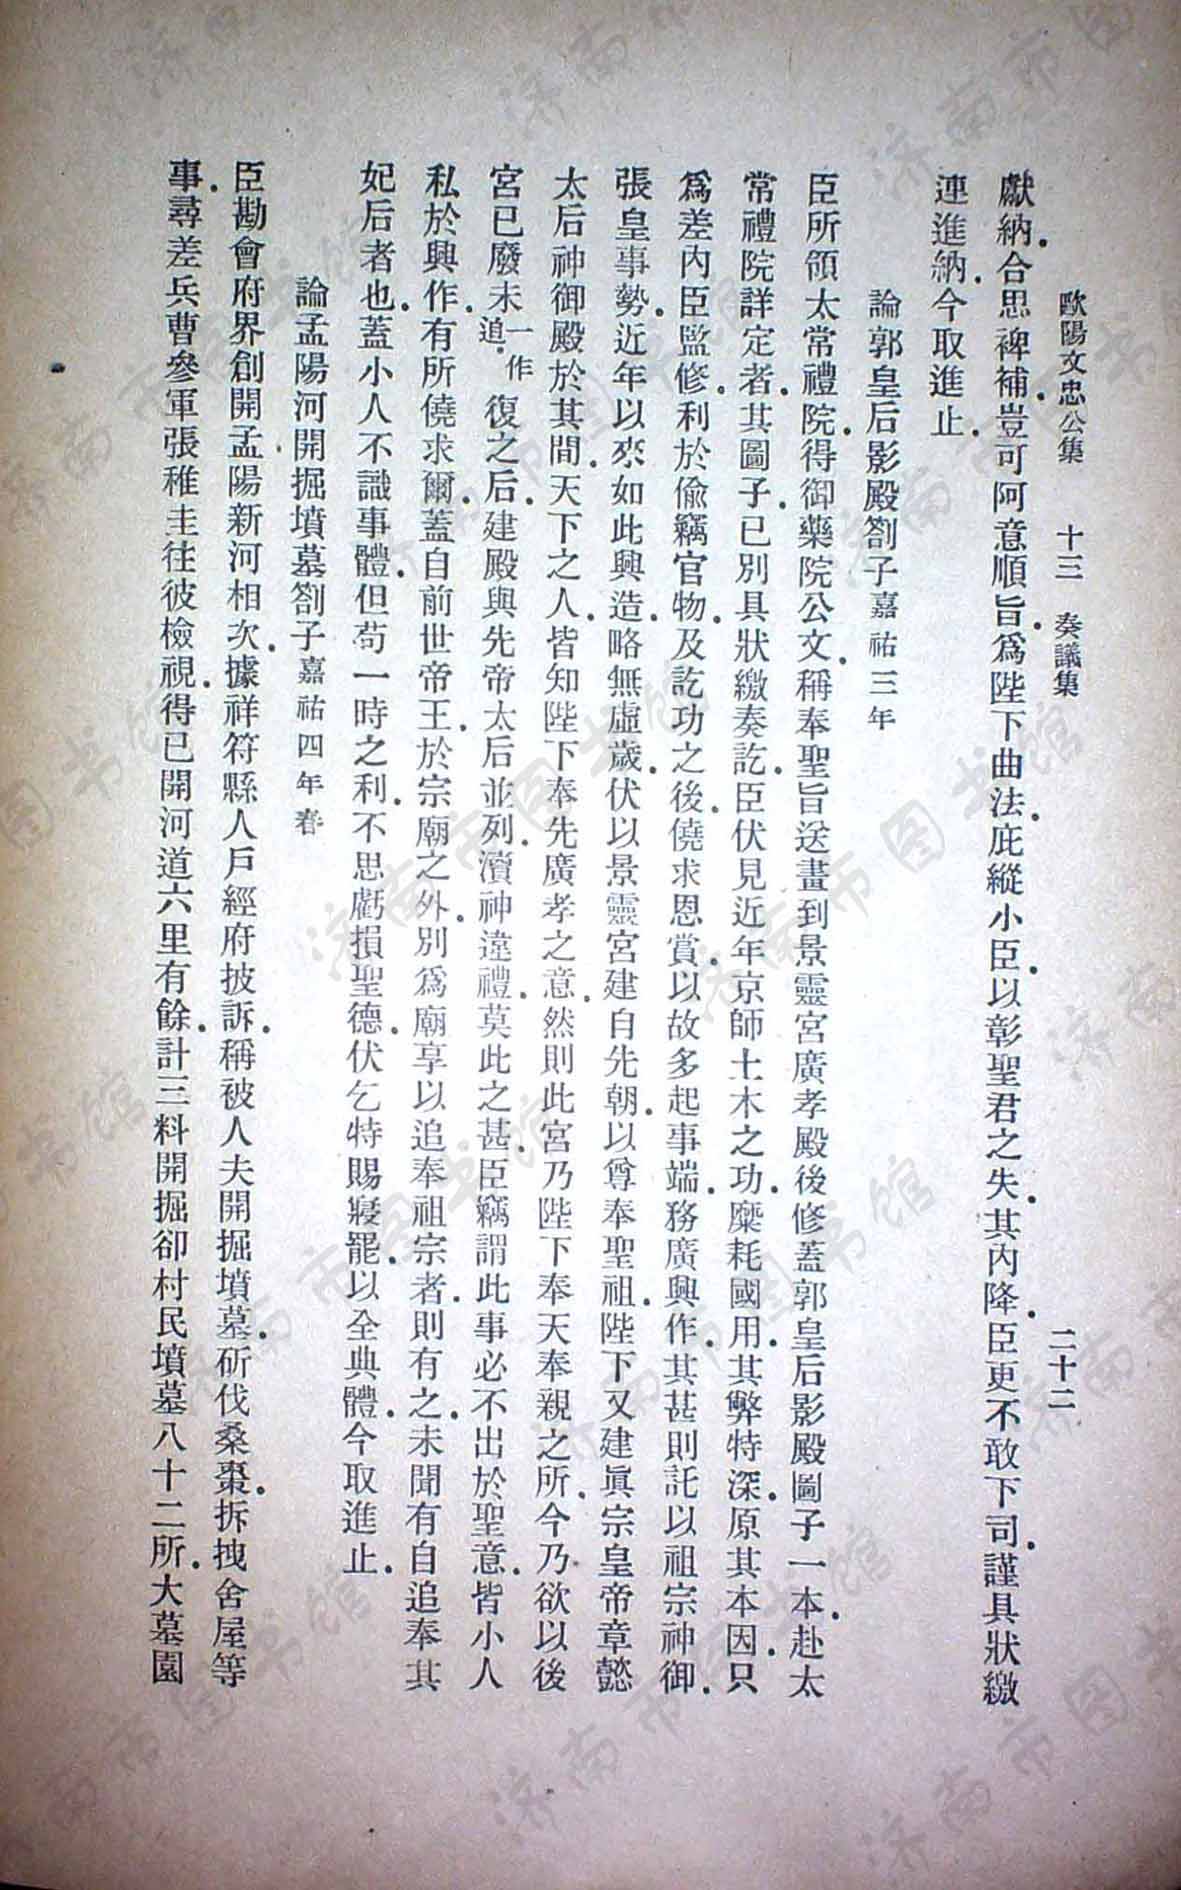 歐陽文忠公集　十三　奏議集　二十二
獻納．合思裨補．豈可阿意順旨．爲陛下曲法庇縱小臣．以彰聖君之失．其內降．臣更不敢下司．謹具狀繳
連進納．今取進止．
論郭皇后影殿劄子嘉祐三年
臣所領太常禮院．得御藥院公文．稱奉聖旨送畫到景靈宮廣孝殿後修蓋郭皇后影殿圖子一本．赴太
常禮院詳定者．其圖子已別具狀繳奏訖．臣伏見近年京師土木之功．糜耗國用．其弊特深．原其本因．只
爲差內臣監修．利於偷竊官物．及訖功之後．僥求恩賞．以故多起事端．務廣興作．其甚則託以祖宗神御．
張皇事勢．近年以來．如此興造．略無虛歲．伏以景靈宮建自先朝．以尊奉聖祖．陛下又建眞宗皇帝章懿
太后神御殿於其間．天下之人．皆知陛下奉先廣孝之意．然則此宮乃陛下奉天奉親之所．今乃欲以後
宮已廢未一作追．復之后．建殿與先帝太后並列．瀆神違禮．莫此之甚．臣竊謂此事必不出於聖意．皆小人
私於興作．有所僥求爾．蓋自前世帝王．於宗廟之外．別爲廟享以追奉祖宗者．則有之．未聞有自追奉其
妃后者也．蓋小人不識事體．但苟一時之利．不思虧損聖德．伏乞特賜寢罷．以全典體．今取進止．
論孟陽河開掘墳墓劄子嘉祐四年春
臣勘會府界創開孟陽新河相次．據祥符縣人戶經府披訴．稱被人夫開掘墳墓．斫伐桑棗．拆拽舍屋等
事．尋差兵曹參軍張稚圭往彼檢視．得已開河道六里有餘．計三料開掘卻村民墳墓八十二所．大墓園